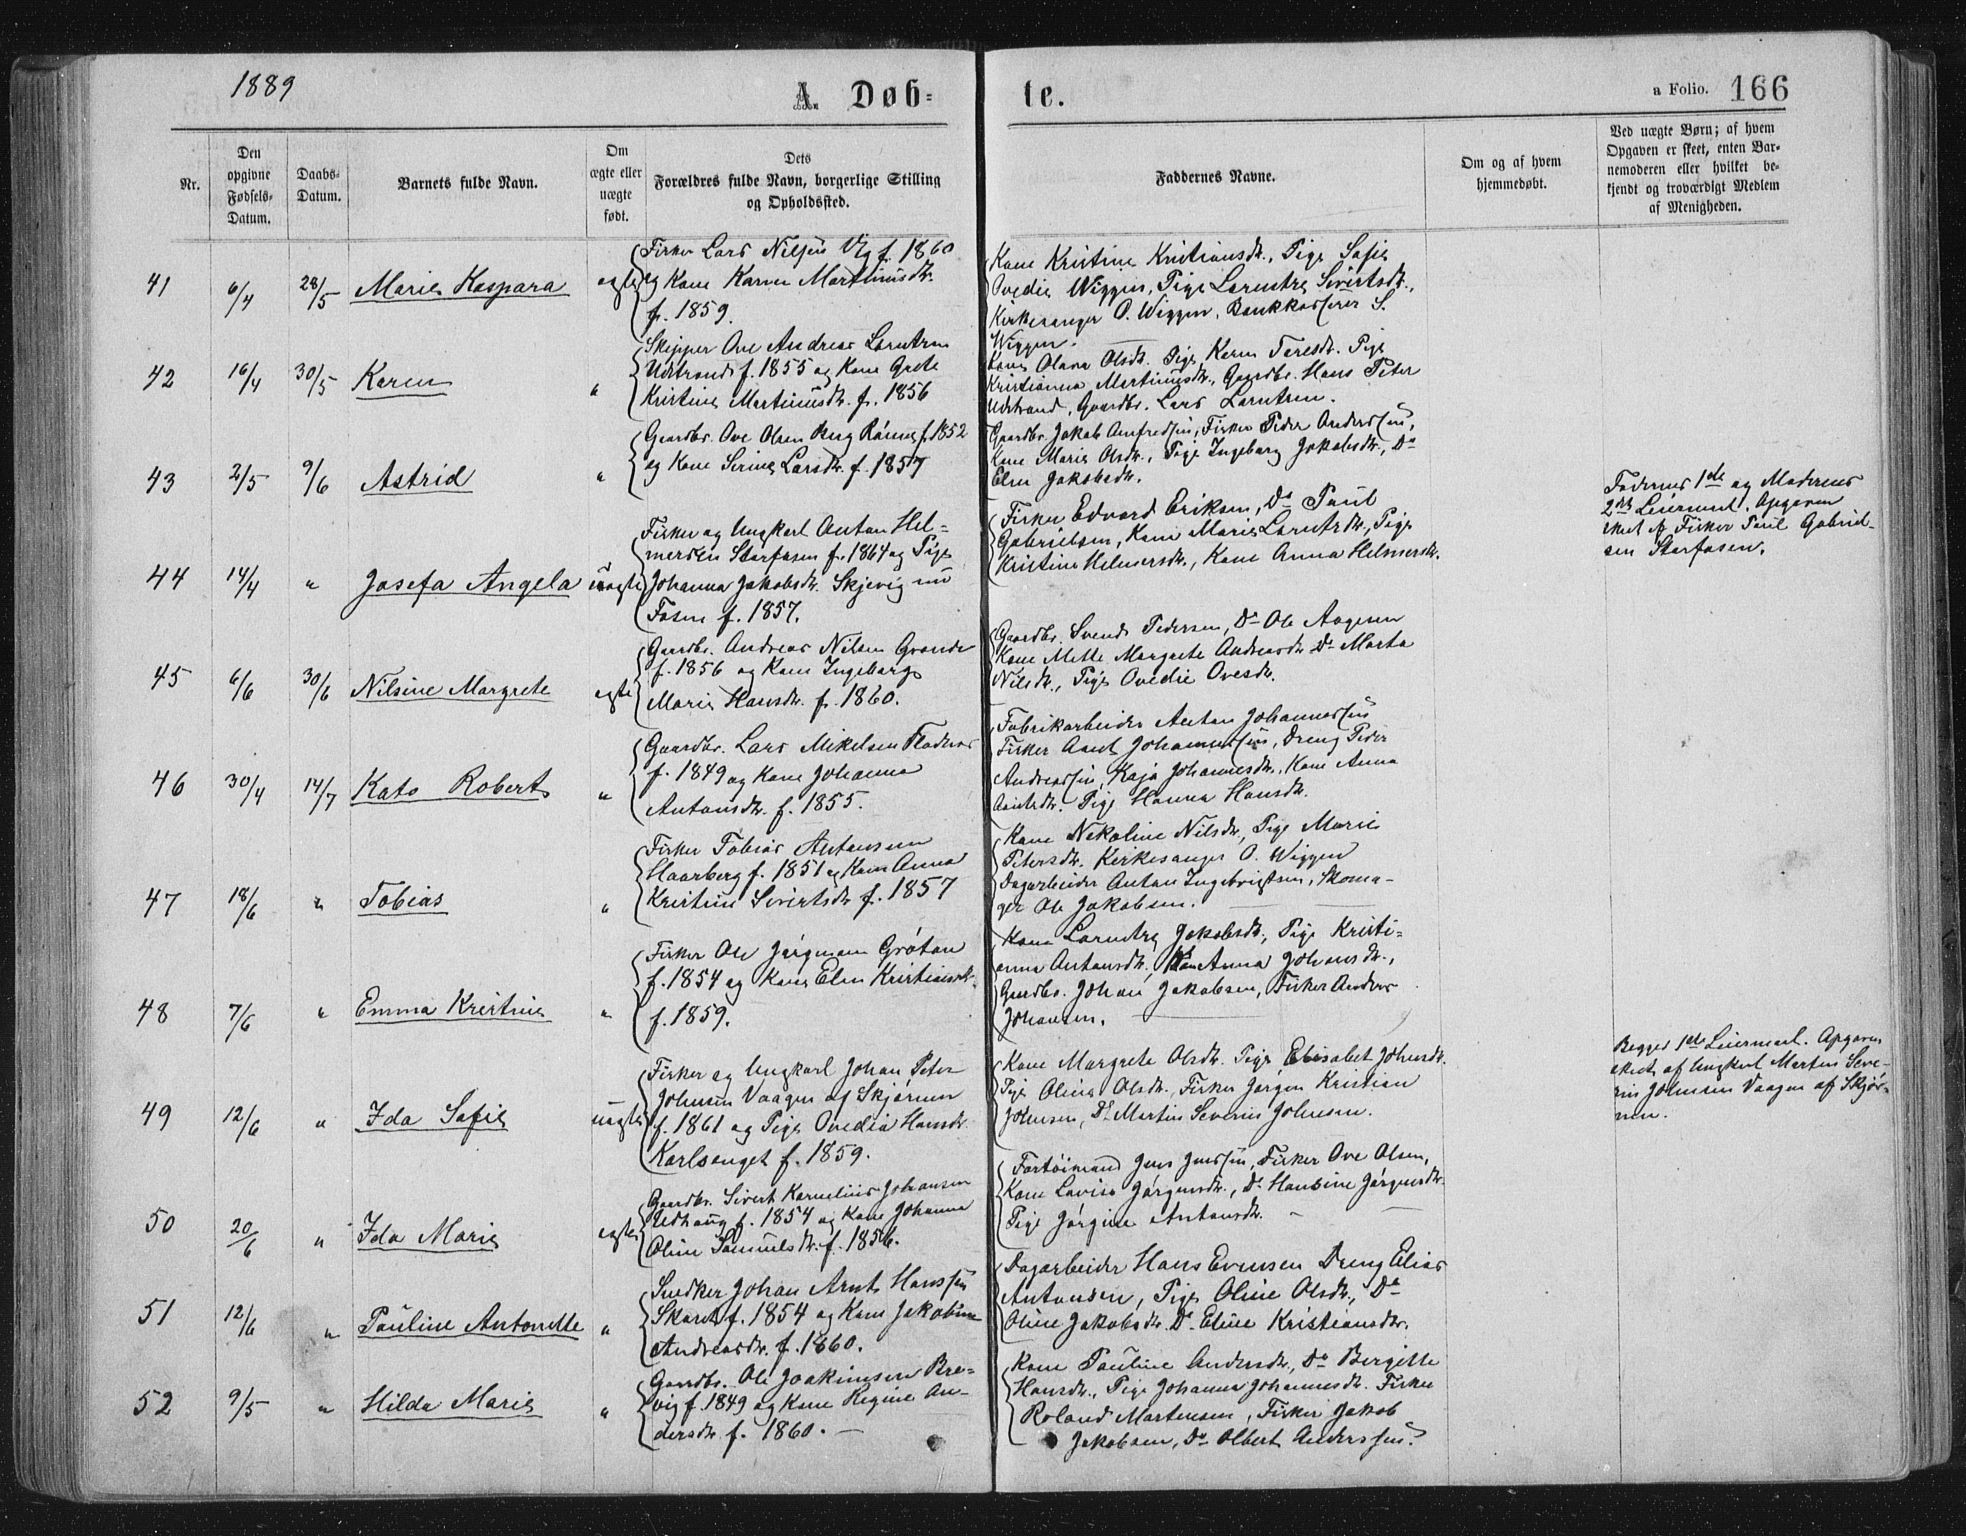 1889
A. Døb-
te.
a Folio. 166
Nr.
Den
opgivne
Fødsels-
Datum.
Daabs-
Datum.
Barnets fulde Navn.
Om
ægte eller
uægte
født.
Dets
Forældres fulde Navn, borgerlige Stilling
og Opholdssted.
Faddernes Navne.
Om og af hvem
hjemmedøbt.
Ved uægte Børn; af hvem
Opgaven er skeet, enten Bar-
nemoderen eller hvilket be-
kjendt og troværdigt Medlem
af Menigheden.
41 6/4 28/5 Marie Kaspara ægte
Fisker Lars Nilsen f. 1860
og Kone Karen Martinusdtr.
f. 1859.
Kone Kristine Kristiansdtr., Pige Sofie
Ovedie Wiggen, Pige Lorentze Sivertsdtr.,
Kirkesanger O. Wiggen, Bankkasserer S.
Wiggen.
42 16/4 30/5 Karen "
Skipper Ove Andreas Lorentzen
Udstrand f. 1855 og Kone Grete
Kristine Martinusdtr. f. 1856
Kone Olava Olsdtr. Pige Karen Pige
Kristianna Martinusdtr., Gaardbr. Hans Peter
Udstrand, Gaardbr. Lars Lorntzen.
43 2/5 9/6 Astrid "
Gaardbr. Ove Olsen Berg f. 1852
og Kone Serine Larsdtr. f. 1857
Gaardbr. Jakob Anfredsen, Fisker Peder Anderssen,
Kone Marie Olsdtr., Pige Ingeborg Jakobsdtr., Do
Elen Jakobsdtr.
44 14/4 " Josefa Angela uægte
Fisker og Ungkarl Anton Hel-
mersen Storfosen f. 1864 og Pige
Johanna Jakobsdtr. Skjevig nu
Fosen f. 1857.
Fisker Edvard Eriksen, Do Paul
Gabrielsen, Kone Marie Lorntzdtr., Pige
Kristine Helmersdtr., Kone Anna Helmersdtr.
Faderens 1de og Moderens
2det Leiermaal. Opgaven
skeet af Fisker Paul Gabriel-
sen Storfosen.
45 6/6 30/6 Nilsine Margrete ægte
Gaardbr. Andreas Nilsen Grande
f. 1856 og Kone Ingeborg
Marie Hansdtr. f. 1860.
Gaardbr. Svend Pedersen, Do Ole Aagesen
Kone Mette Margrete Andreasdtr. Do Marta
Nilsdtr., Pige Ovedie Ovesdtr.
46 30/4 14/7 Kato Robert "
Gaardbr. Lars Mikelsen Flodnes
f. 1849 og Kone Johanna
Antonsdtr. f. 1855.
Fabrikarbeider Anton Johannessen
Fisker Arnt Johannessen, Dreng Peder
Andreassen, Kaja Johannesdtr., Kone Anna
Arntsdtr. Pige Hanna Hansdtr.
47 18/6 " Tobias "
Fisker Tobias Antonsen
Haarberg f. 1851 og Kone Anna
Kristine Sivertsdtr. f. 1857
Kone Nekoline Nilsdtr., Pige Marie
Petersdtr. Kirkesanger O. Wiggen
Dagarbeider Anton Ingebrigtsen, Skoma-
ger Ole Jakobsen.
48 7/6 " Emma Kristine "
Fisker Ole Jørgensen Grøtan
f. 1854 og Kone Elen Kristiansdtr.
f. 1859.
Kone Lorntze Jakobsdtr., Pige Kristi-
anna Antonsdtr. Kone Anna Johansdtr.,
Gaardbr. Johan Jakobsen, Fisker Anders
Johansen.
49 12/6 " Ida Sofie uægte
Fisker og Ungkarl Johan Peter
Johnsen Vaagen af Skjørnen
f. 1861 og Pige Ovedia Hansdtr.
Karlsenget f. 1859.
Kone Margrete Olsdtr. Pige Elisabet Johnsdtr.
Pige Olina Olsdtr., Fisker Jørgen Kristian
Johnsen, Do Martin Severin Johnsen.
Begges 1ste Leiermaal. Opgaven
skeet af Ungkarl Martin Seve-
rin Johnsen Vaagen af Skjør-
nen.
50 20/6 " Ida Marie ægte
Gaardbr. Sivert Kornelius Johansen
Udhaug f. 1854 og Kone Johanna
Oline Samuelsdtr. f. 1856.
Fartøimand Jens Jenssen, Fisker Ove Olsen,
Kone Lovise Jørgensdtr., Do Hansine Jørgensdtr.
Pige Jørgine Antonsdtr.
51 12/6 " Pauline Antonette "
Snedker Johan Arnt Hanssen
f. 1854 og Kone Jakobine
Andreasdtr. f. 1860.
Dagarbeider Hans Evensen Dreng Elias
Antonsen, Pige Oline Olsdtr., Do
Oline Jakobsdtr. Do Eline Kristiansdtr.
52 9/5 " Hilda Marie "
Gaardbr. Ole Joakimsen Bre-
vig f. 1849 og Kone Regine An-
dersdtr. f. 1860.
Kone Pauline Andersdtr., Do Bergitte
Hansdtr., Pige Johanna Johannesdtr. Fisker
Roland Mortensen, Fisker Jakob
Jakobsen, Do Albert Anderssen.